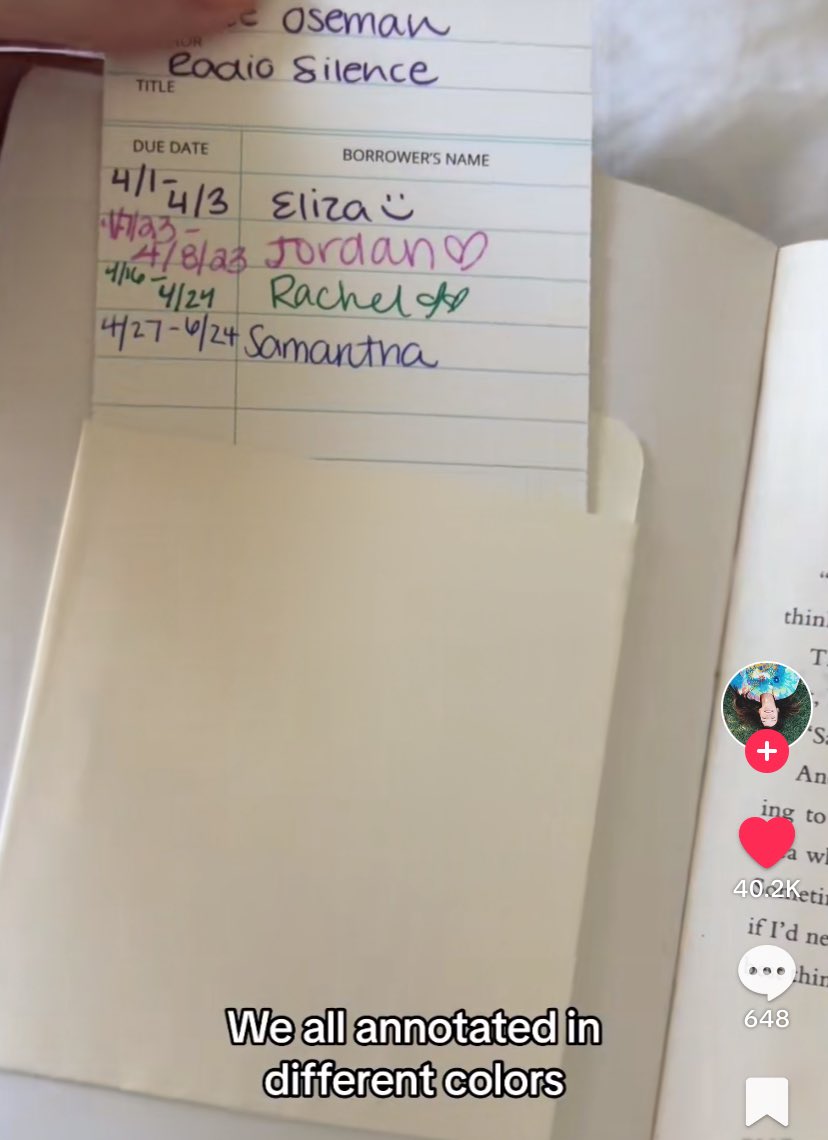 Oseman
Radio Silence
TITLE
DUE DATE
BORROWER'S NAME
4/1-
4/3
Eliza
4/8/23
Jordan
4/16-
4/24
Rachel
4/27-6/24
Samantha
thin
ing to
if I'd ne
40.2K
648
We all annotated in
different colors